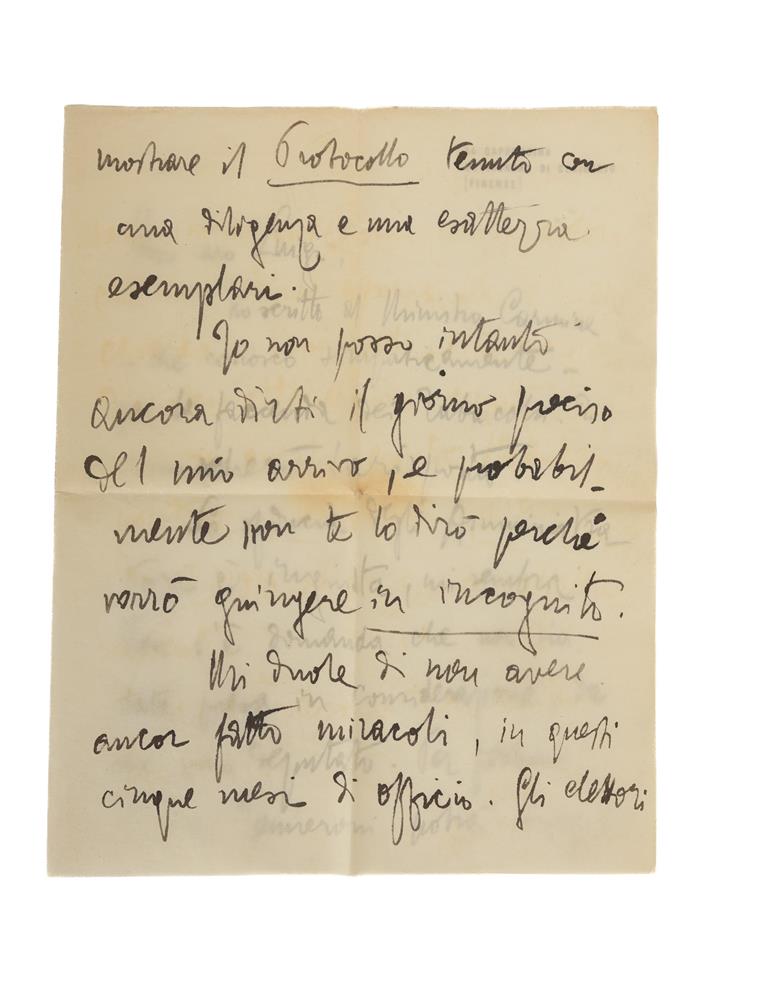 mostrare il Protocollo tenuto con
una diligenza e una esattezza
esemplari.
Io non posso intanto
ancora dirti il giorno preciso
del mio arrivo, e probabil-
mente non te lo dirò perchè
vorrò giungere in incognito.
Mi duole di non avere
ancor fatto miracoli, in questi
cinque mesi di officio. Gli elettori